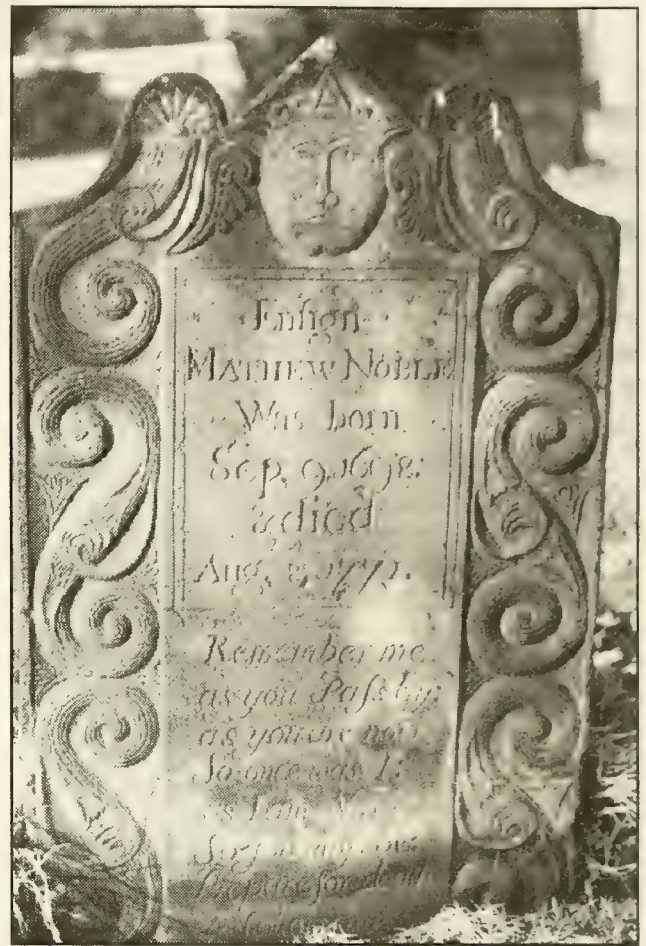 Ensign
MATTHEW NOBLE
Was born
Sep. 9, 1698;
& died
Aug.
Remember me
as you Paſs by;
as you are now
So once was I:
as I am
So you
Prepare for death